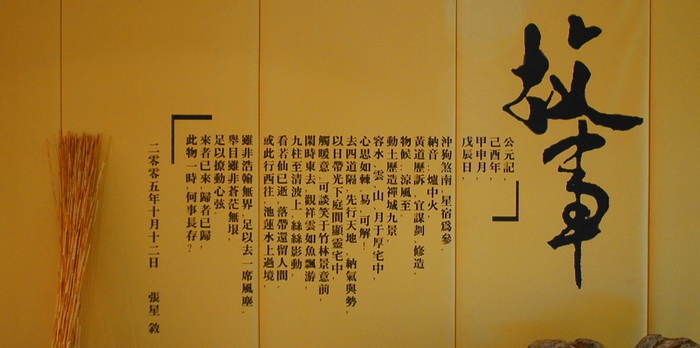 故事
公元記,
己酉年,
甲申月,
戊辰日,
沖狗煞南,星宿爲參,
納音:爐中火,
黃道歷訴:宜謀劃,修造,
物候:涼風至,
動土歷造禪城九景,
容水、雲、山、月于厚宅中,
心思如棘,易,可解!,
去四道隔,先行天地,納氣與勢,
以日帶光下庭間顯靈宅中,
觸暖意,可談笑于竹林景意前,
閑時東去,觀祥雲如魚飄游,
九柱至清波上,絲絲影動,
看若仙已逝,落帶還留人間,
或此行西往,池蓮水上過境,
雖非浩翰無界,足以去一席風塵,
舉目雖非蒼茫無垠,
足以撩動心弦,
來者已來,歸者已歸,
此物一時,何事長存?
二零零五年十月十二日 張星 敘